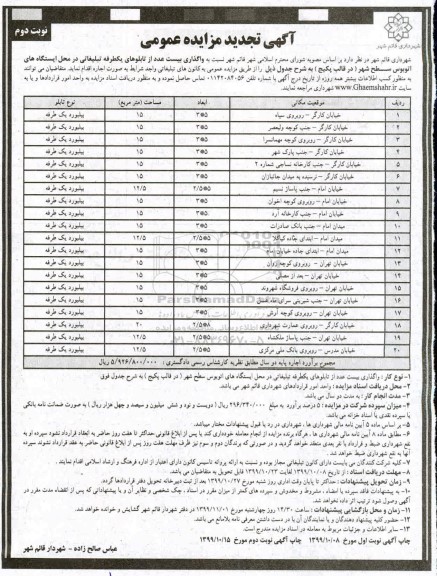 نوبت دوم
آگهی تجدید مزایده عمومی
شهرداری قائم شهر
شهرداری قائم شهر در نظر دارد بر اساس مصوبه شورای محترم اسلامی شهر قائم شهر نسبت به واگذاری بیست عدد از تابلوهای یکطرفه تبلیغاتی در محل ایستگاه های
اتوبوس سطح شهر ( در قالب پکیج ) به شرح جدول ذیل را از طریق مزایده عمومی به کانون های تبلیغاتی واجد شرایط به صورت اجاره اقدام نماید. متقاضیان می توانند
به منظور کسب اطلاعات بیشتر همه روزه از تاریخ درج آگهی با شماره تلفن ۰۱۱۴۲۰۸۴۰۵۶ تماس حاصل نموده و به منظور دریافت اسناد مزایده به واحد امور قراردادها و یا به
سایت www.Ghaemshahr.ir شهرداری مراجعه نمایند.
ردیف موقعیت مکانی ابعاد مساحت (متر مربع) نوع تابلو
۱ خیابان کارگر – روبروی سپاه ۵*۳ ۱۵ بیلبورد یک طرفه
۲ خیابان کارگر – جنب کوچه ولیعصر ۵*۳ ۱۵ بیلبورد یک طرفه
۳ خیابان کارگر – روبروی کوچه مهمانسرا ۵*۳ ۱۵ بیلبورد یک طرفه
۴ خیابان کارگر – جنب پارک شهر ۵*۳ ۱۵ بیلبورد یک طرفه
۵ خیابان کارگر – جنب کارخانه نساجی شماره ۲ ۵*۳ ۱۵ بیلبورد یک طرفه
۶ خیابان کارگر – نرسیده به میدان جانبازان ۵*۳ ۱۵ بیلبورد یک طرفه
۷ خیابان امام – جنب پاساژ نسیم ۵*۲/۵ ۱۲/۵ بیلبورد یک طرفه
۸ خیابان امام – روبروی کوچه اخوان ۵*۳ ۱۵ بیلبورد یک طرفه
۹ خیابان امام – جنب کارخانه آرد ۵*۳ ۱۵ بیلبورد یک طرفه
۱۰ میدان امام – جنب بانک صادرات ۵*۳ ۱۵ بیلبورد یک طرفه
۱۱ میدان امام – ابتدای جاده کیاکلا ۵*۲/۵ ۱۲/۵ بیلبورد یک طرفه
۱۲ میدان امام – ابتدای جاده خیابان ساری ۵*۳ ۱۵ بیلبورد یک طرفه
۱۳ خیابان تهران – روبروی کوچه ۵*۳ ۱۵ بیلبورد یک طرفه
۱۴ خیابان تهران – بعد از مصلی ۵*۳ ۱۵ بیلبورد یک طرفه
۱۵ خیابان تهران – روبروی فروشگاه شهروند ۵*۳ ۱۵ بیلبورد یک طرفه
۱۶ خیابان تهران – جنب شیرینی سرای ۵*۳ ۱۵ بیلبورد یک طرفه
۱۷ خیابان تهران – روبروی کوچه آرش ۵*۳ ۱۵ بیلبورد یک طرفه
۱۸ خیابان کارگر – روبروی عمارت شهرداری ۸*۲/۵ ۲۰ بیلبورد یک طرفه
۱۹ خیابان تهران – جنب پاساژ ملکشاه ۵*۲/۵ ۱۲/۵ بیلبورد یک طرفه
۲۰ خیابان مدرس – روبروی بانک ملی مرکزی ۵*۲/۵ ۱۲/۵ بیلبورد یک طرفه
مجموع برآورد اجاره پایه دو سال مطابق نظریه کارشناس رسمی دادگستری : ۵/۹۲۶/۸۰۰/۰۰۰ ریال
۱- نوع کار : واگذاری بیست عدد از تابلوهای یکطرفه تبلیغاتی در محل ایستگاه های اتوبوس سطح شهر ( در قالب پکیج ) به شرح جدول فوق
۲- محل دریافت اسناد مزایده : واحد امور قراردادهای شهرداری قائم شهر می باشد.
۳- مدت انجام کار : به مدت دو سال می باشد.
۴- میزان سپرده شرکت در مزایده : ۵ درصد برآورد به مبلغ ۲۹۶/۳۴۰/۰۰۰ ریال ( دویست و نود و شش میلیون و سیصد و چهل هزار ریال ) به صورت ضمانت نامه بانکی
یا سپرده نقدی یا اسناد خزانه می باشد.
۵- بر اساس ماده ۵ آیین نامه مالی شهرداری ها ، شهرداری در رد یا قبول پیشنهادات مختار میباشد.
۶- مطابق ماده ۸ آیین نامه مالی شهرداری ها ، هرگاه برنده مزایده از انجام معامله خودداری کند یا پس از ابلاغ قانونی حداکثر تا هفت روز حاضر به انعقاد قرارداد نشود سپرده او به
نفع شهرداری ضبط و قرارداد با نفر بعدی منعقد خواهد گردید و در صورتی که برندگان دوم و سوم نیز ظرف مهلت هفت روز پس از ابلاغ قانونی حاضر به عقد قرارداد نشوند سپرده
آنها به نفع شهرداری ضبط خواهد شد.
۷- کلیه شرکت کنندگان می بایست دارای کانون تبلیغاتی مجاز بوده و نسبت به ارائه پروانه تاسیس کانون دارای اعتبار از اداره فرهنگ و ارشاد اسلامی اقدام نمایند.
۸- مهلت دریافت اسناد : از تاریخ ۱۳۹۹/۱۰/۰۸ لغایت ۱۳۹۹/۱۰/۲۳ قابل تحویل به متقاضیان می باشد.
۹- زمان تحویل پیشنهادات : حداکثر تا پایان وقت اداری روز شنبه مورخ ۱۳۹۹/۱۰/۲۷ بعد از ثبت دبیرخانه تحویل دفتر قراردادها گردد.
۱۰- به پیشنهادات فاقد سپرده یا امضاء ، مشروط و مخدوش و سپرده های کمتر از میزان مقرر در اسناد ، چک شخصی و نظایر آن و یا پیشنهاداتی که پس از انقضاء مدت مقرر در
آگهی وصول شود ترتیب اثر داده نخواهد شد.
۱۱- زمان و محل بازگشایی پیشنهادات : ساعت ۱۴/۳۰ روز چهارشنبه مورخ ۱۳۹۹/۱۱/۰۱ در دفتر شهردار قائم شهر گشایش و خوانده خواهد شد.
۱۲- حضور کلیه پیشنهاد دهندگان و یا نمایندگان آن با در دست داشتن معرفی نامه بلامانع می باشد.
۱۳- سایر اطلاعات و جزئیات مربوط به معامله در اسناد مزایده مندرج است.
چاپ آگهی نوبت اول مورخ ۱۳۹۹/۱۰/۰۸ چاپ آگهی نوبت دوم مورخ ۱۳۹۹/۱۰/۱۵
عباس صالح زاده – شهردار قائم شهر